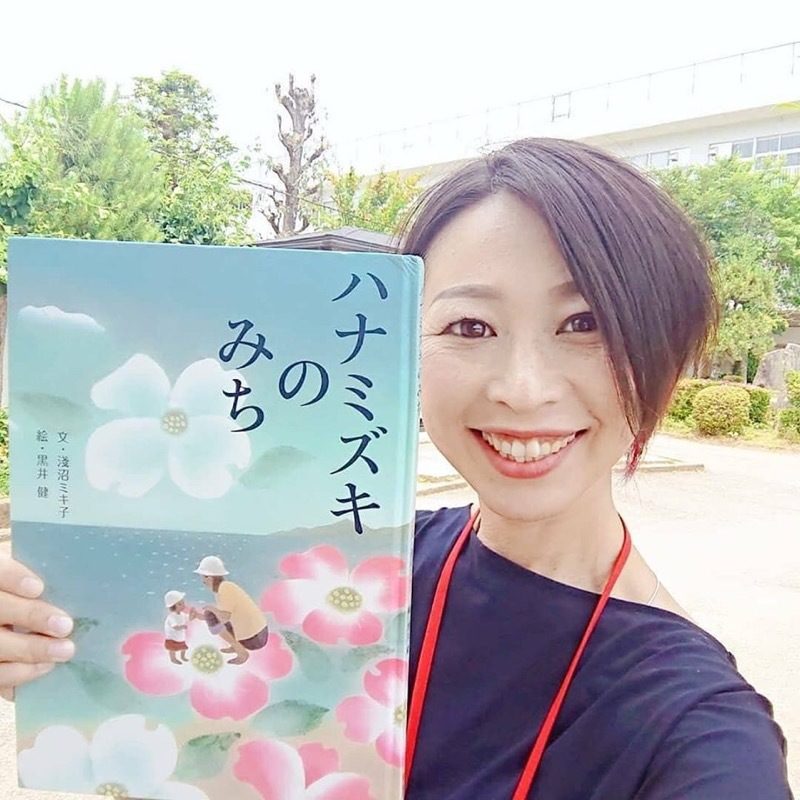 ハナミズキ
の
みち
文・淺沼ミキ子
絵・黒井 健